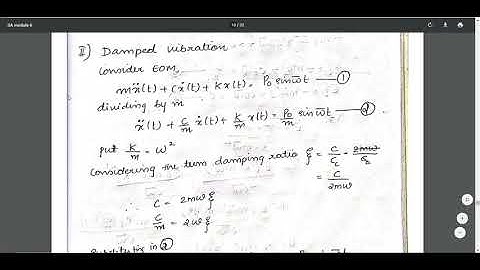 SA module 6
10 / 32
II) Damped vibration
Consider EOM,
mẍ(t) + cẋ(t) + Kx(t) = P₀ sin ω̄t — ①
dividing by m
ẍ(t) + C/m ẋ(t) + K/m x(t) = P₀/m sin ω̄t — ②
put K/m = ω²
Considering the term damping ratio ξ = C/Cc = 2mω/Cc
= C/2mω
∴ C = 2mω ξ
C/m = 2ω ξ